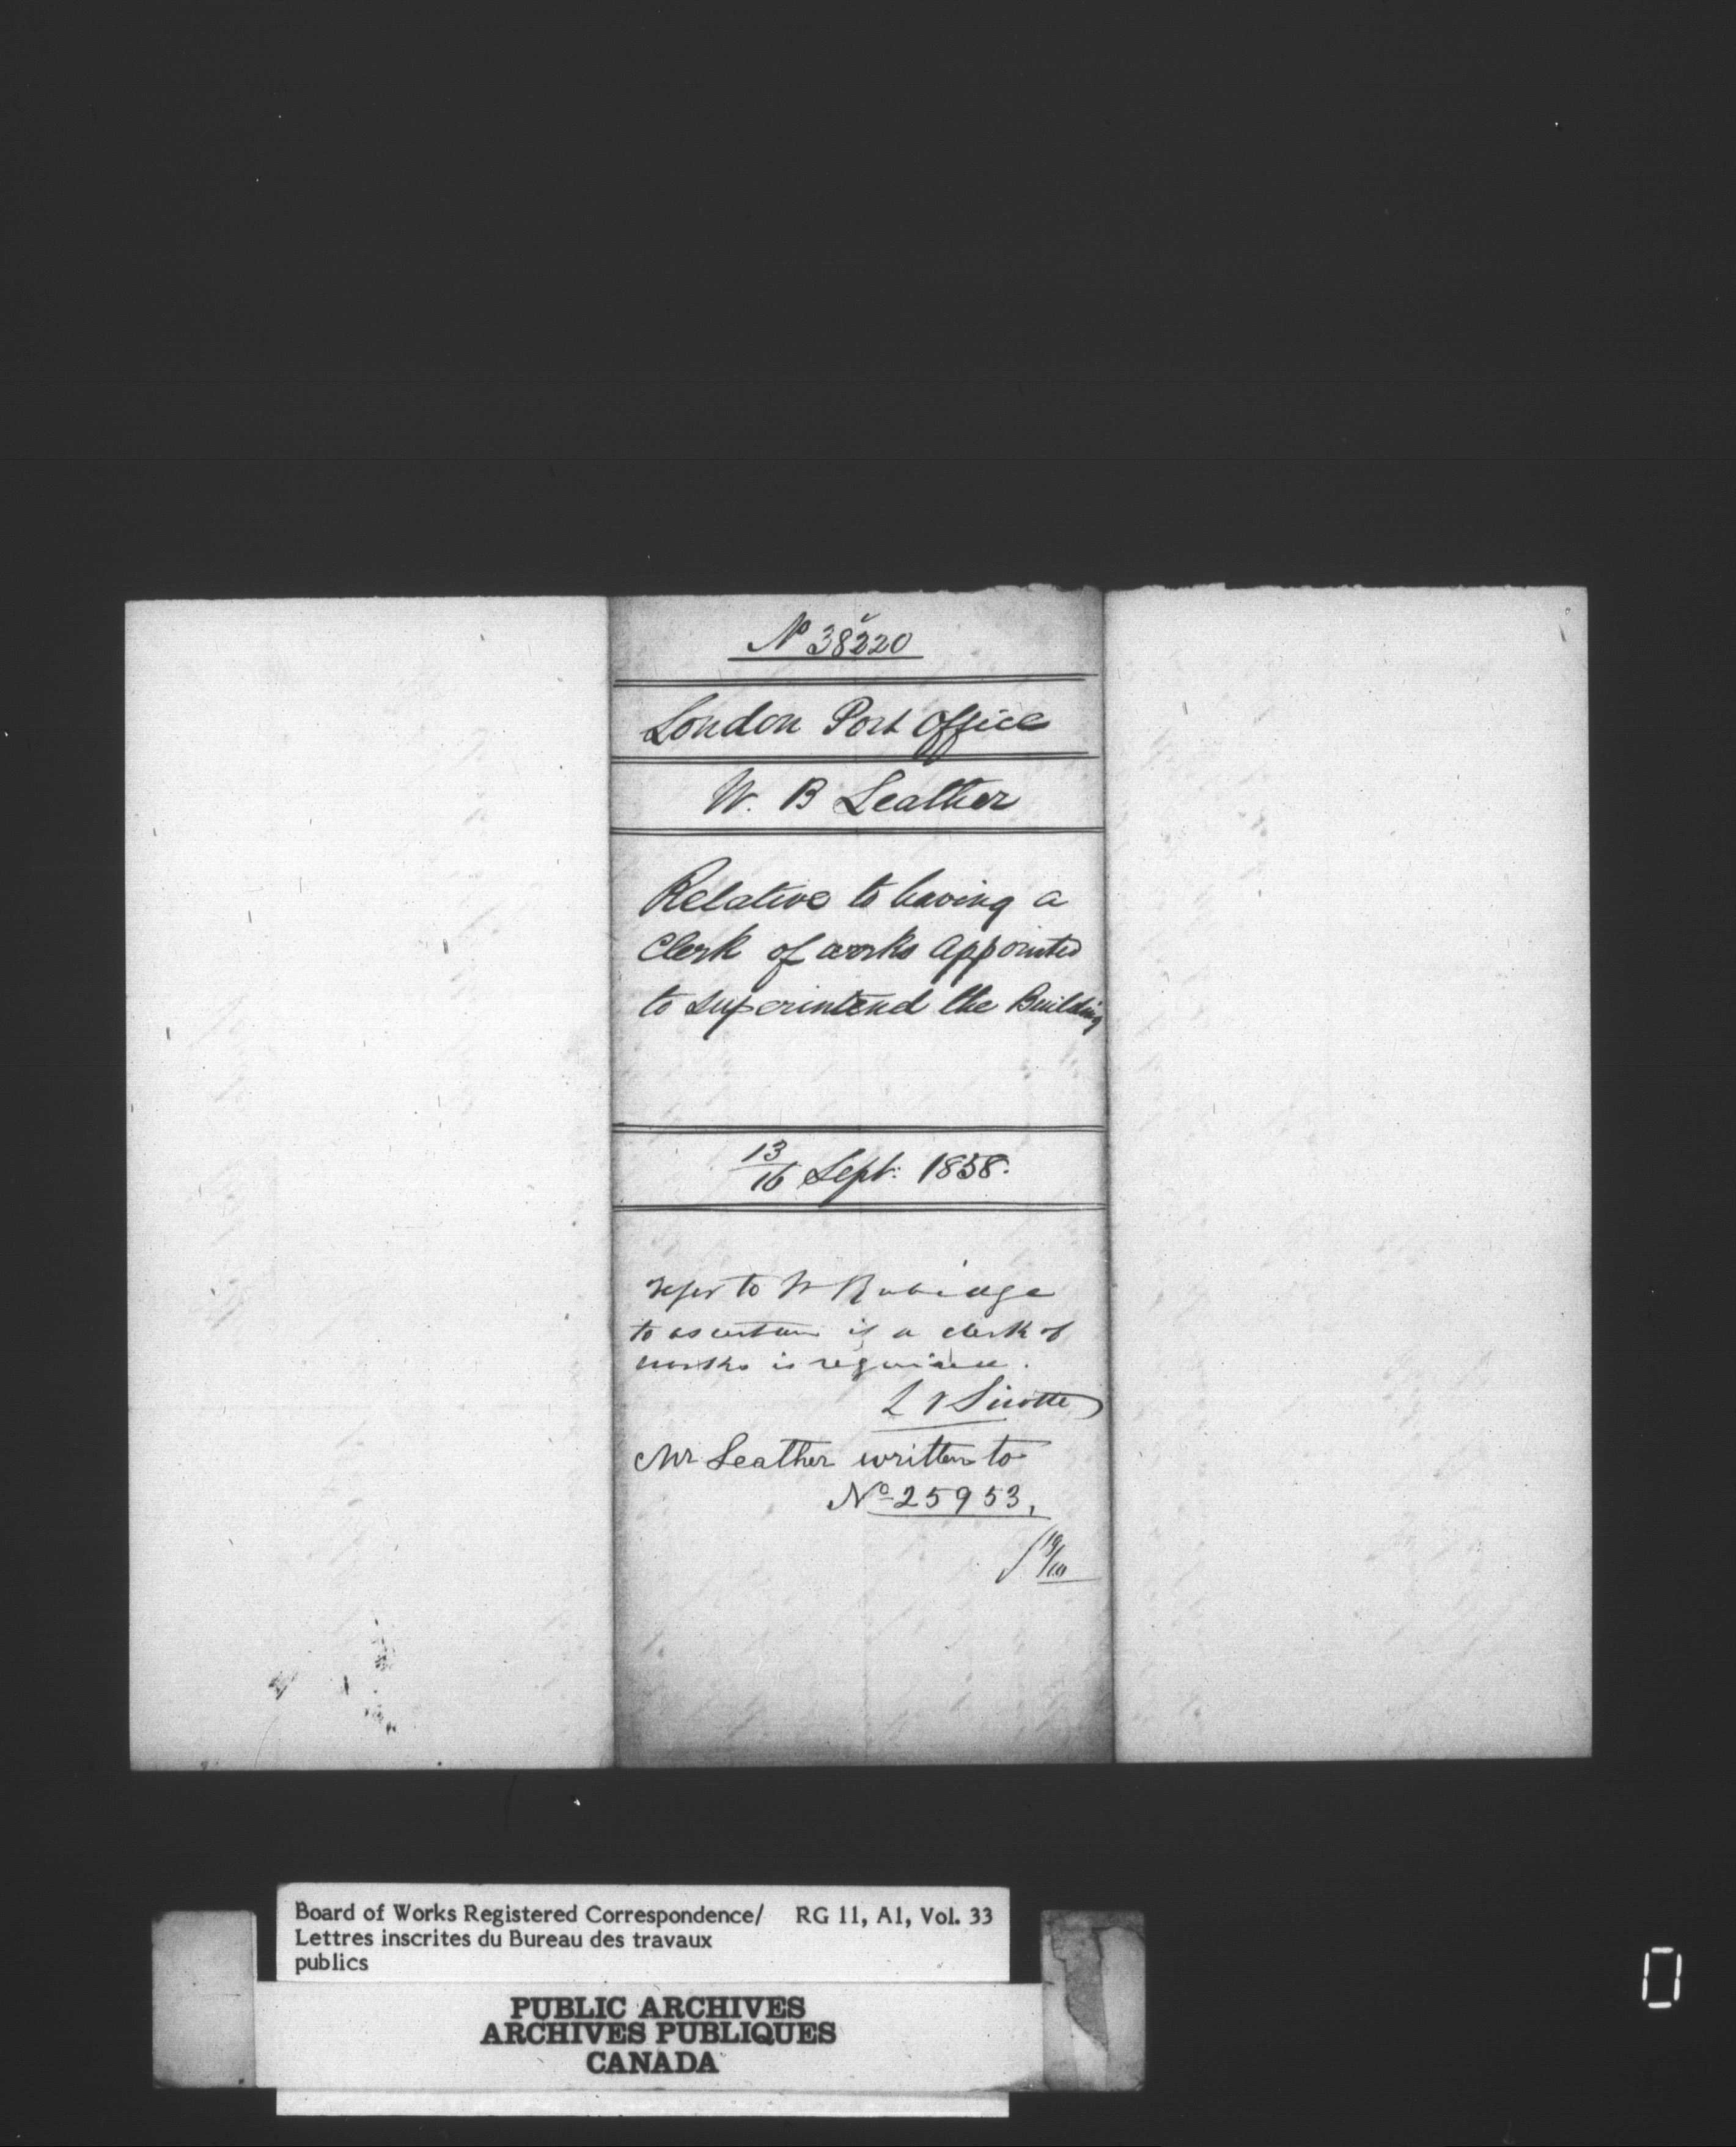 No 38220
London Post Office
W. B Leather
Relative to having a
Clerk of works appointed
to superintend the Building
13/16 Sept: 1858.
refer to Mr Rubidge
to ascertain if a clerk of
works is required.
L V Sicotte
Mr Leather written to
No 25953.
19/10
Board of Works Registered Correspondence/ RG 11, A1, Vol. 33
Lettres inscrites du Bureau des travaux
publics
PUBLIC ARCHIVES
ARCHIVES PUBLIQUES
CANADA
0